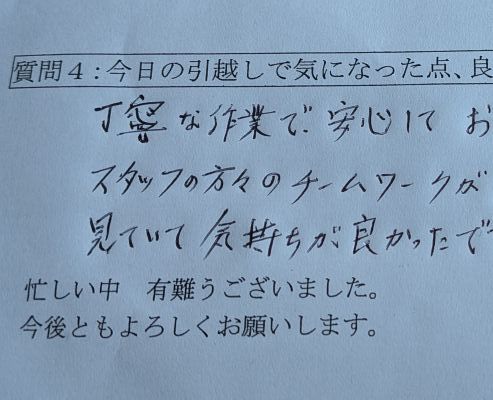 質問４：今日の引越しで気になった点、良
丁寧な作業で安心して お
スタッフの方々のチームワークが
見ていて気持ちが良かったで
忙しい中　有難うございました。
今後ともよろしくお願いします。